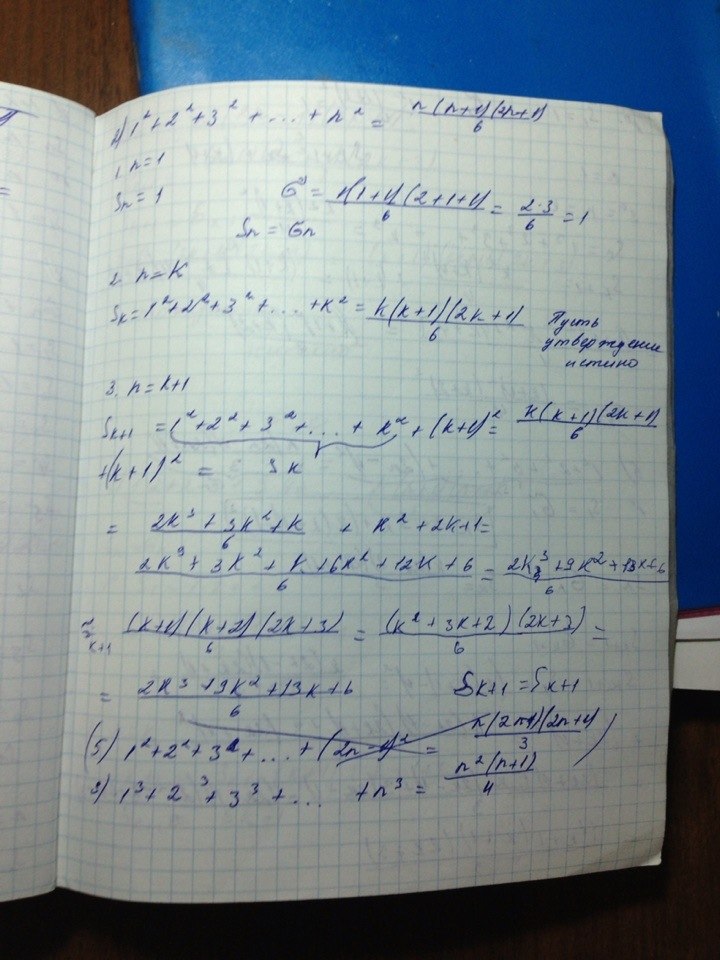 2) 1² + 2² + 3² + ... + n² = n(n+1)(2n+1)/6
1. n=1
Sn = 1
G = 1(1+1)(2+1+1)/6 = 2·3/6 = 1
Sn = Gn
2. n=K
Sk = 1² + 2² + 3² + ... + K² = k(k+1)(2k+1)/6
Пусть
утверждение
истино
3. n=k+1
Sk+1 = 1² + 2² + 3² + ... + k² + (k+1)² = k(k+1)(2k+1)/6
+(k+1)² = Sk
= 2k³ + 3k² + k/6 + k² + 2k+1 =
2k³ + 3k² + k + 6k² + 12k + 6/6 = 2k³ + 9k² + 13k+6/6
k+1 (k+1)(k+2)(2k+3)/6 = (k² + 3k+2)(2k+3)/6 =
= 2k³ + 9k² + 13k + 6/6
Sk+1 = Sk+1
(5) 1² + 2² + 3² + ... + (2n-1)² = n(2n+1)(2n+1)/3
2) 1³ + 2³ + 3³ + ... + n³ = n²(n+1)/4